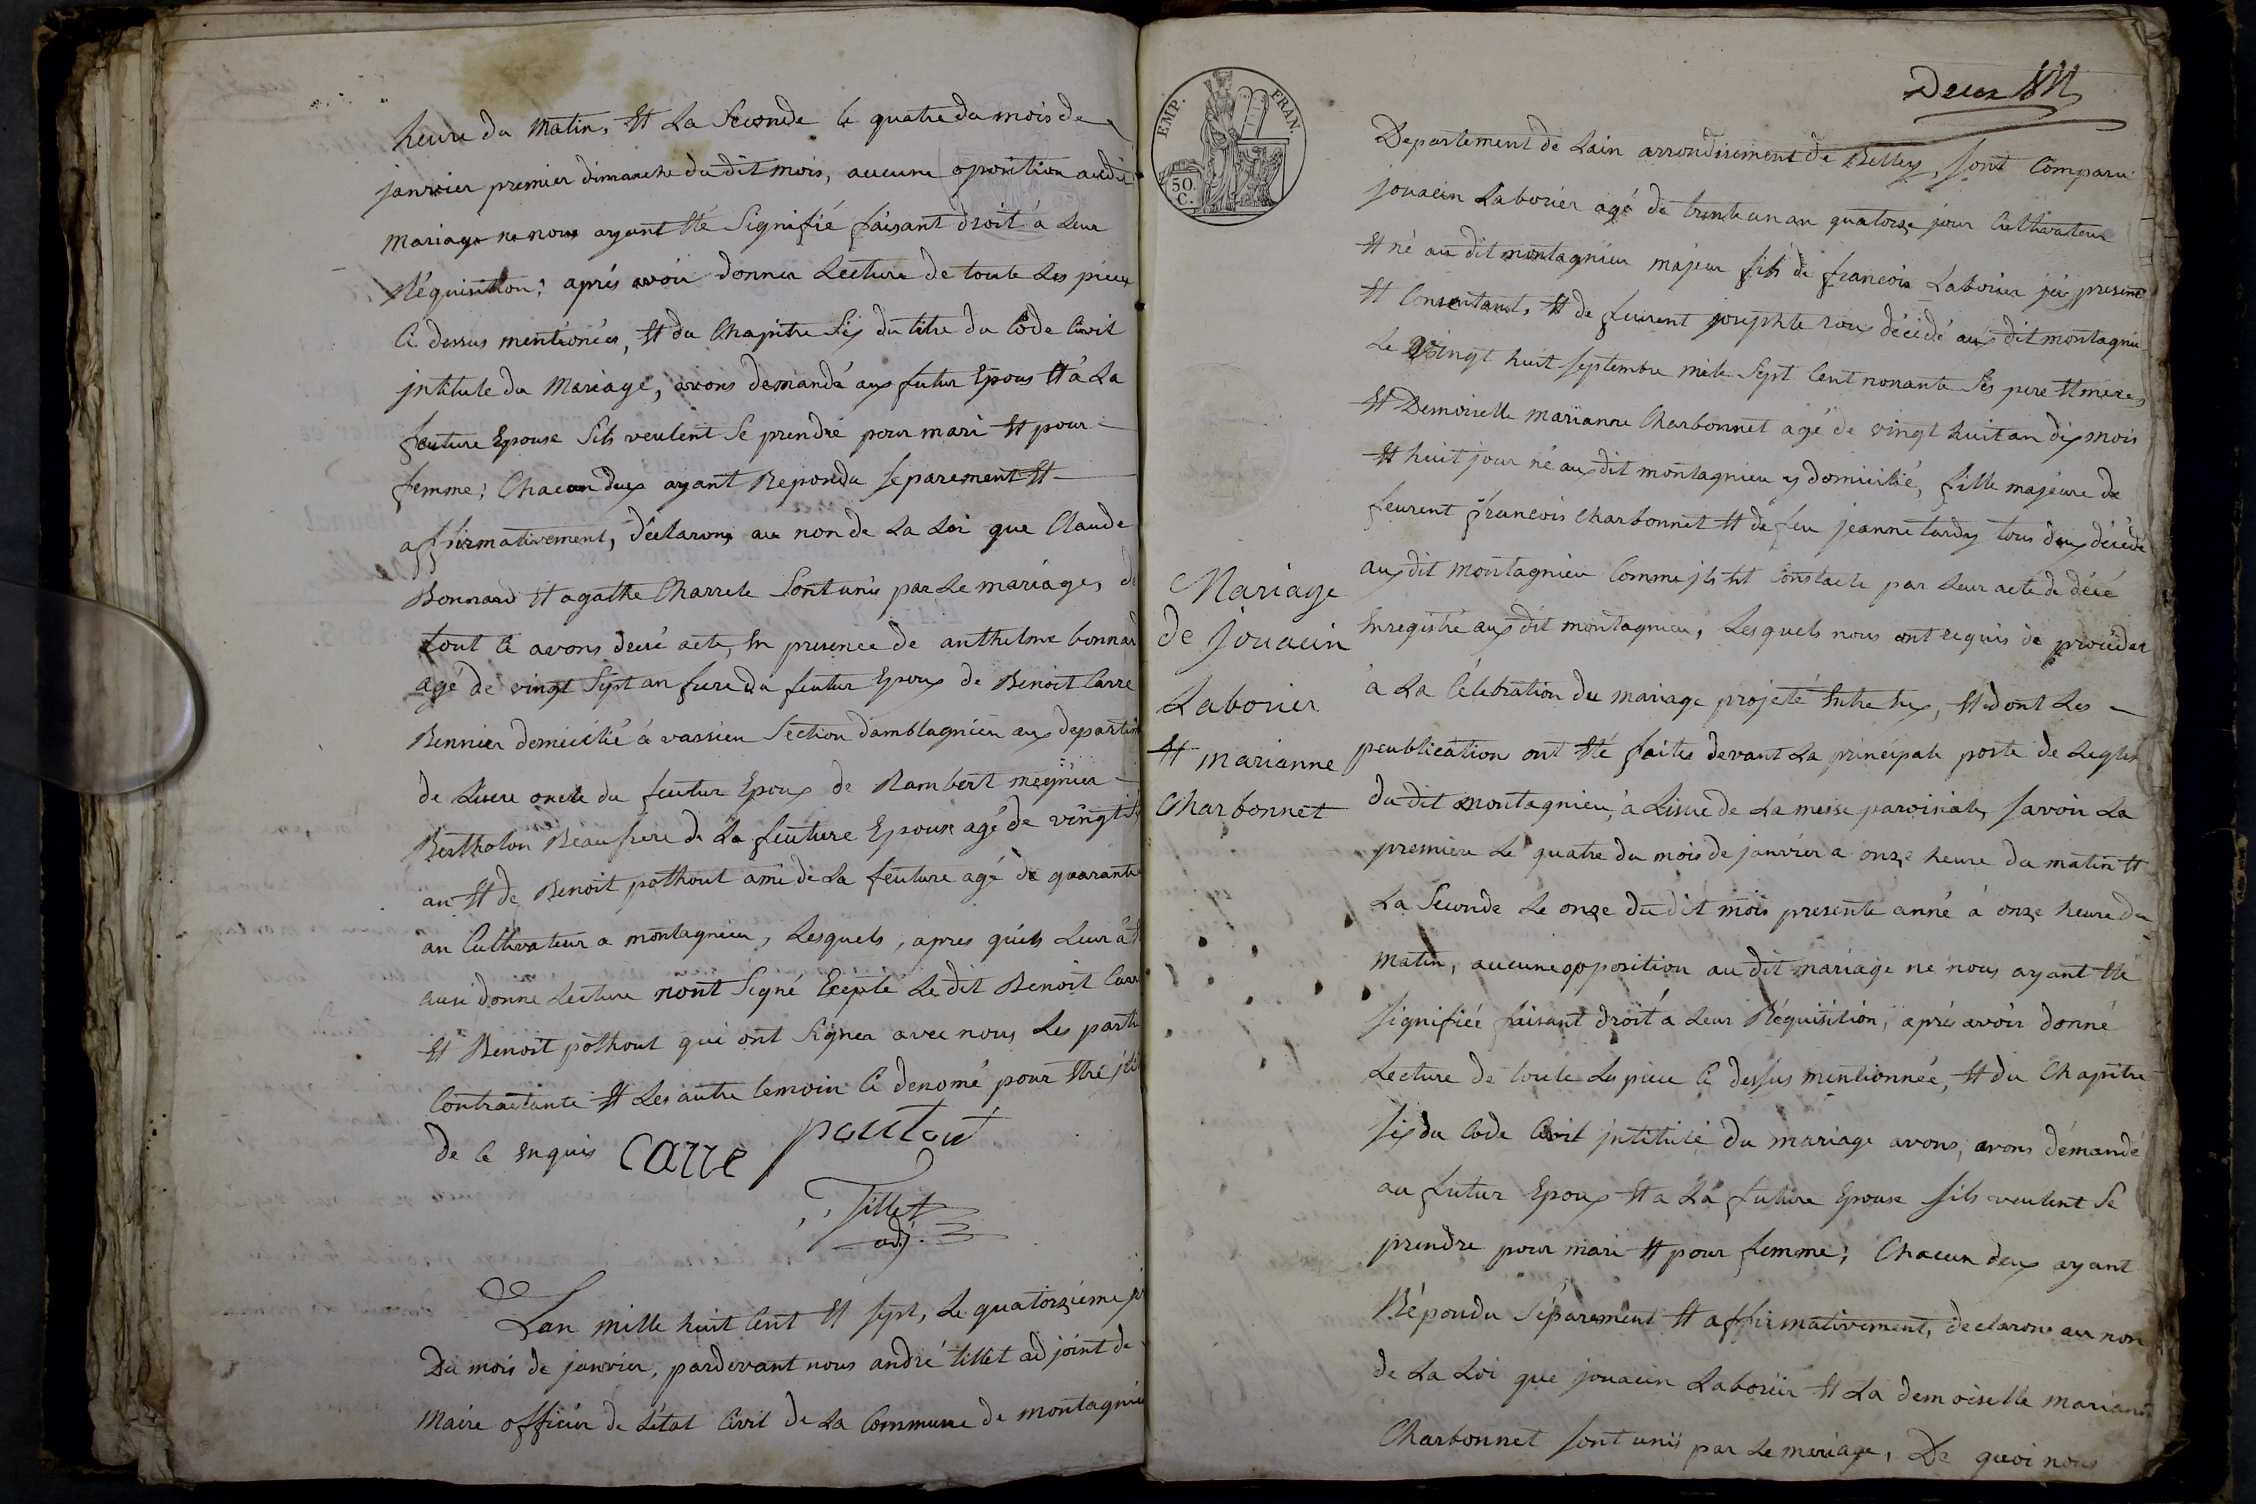 heure du matin, Et La Seconde le quatre du mois de
janvier premier dimanche du dit mois, aucune oposition audit
mariage ne nous ayant Eté Signifié faisant droit á Leur
Réquisition; aprés avoir donner Lecture de toute Les piece
Ci dessus mentionées, Et du Chapitre Six du titre du Code Civil
jntitule du Mariage, avons demandé aux futur Epous Et á La
feuture Epouse Sils veulent Se prendre pour mari Et pour
femme; Chacun deux ayant Repondu Séparement Et
affirmativement, déclarons au non de La Loi que Claude
Bonnard Et agathe Charrete Sont unis par Le mariage, de
tout Ce avons desré acte, En presence de anthelme bonnard
agé de vingt Sept an frere du feutur Epoux de Benoit Carre
Bennier domicilié á vassieu Section damblagnieu aux departem
de Lisere oncle du feutur Epoux de Rambert megnier
Bertholon Beaufrere de La feuture Epouse agé de vingt
an Et de Benoit pothout ami de La feuture agé de quarante
an Cultivateur a montagnieu, Lesquels, apres quils Leur á
ausi donne Lecture nont Signé Excepté Le dit Benoit Carre
Et Benoit pothout qui ont Signer avec nous Les parti
Contractante Et Les autre temoin Ci denomé pour Etre
de Ce Enquis Carre pautout
Tillet
adj.
Lan mille huit Cent Et Sept, Le quatorziéme
Du mois de janvier, pardevant nous andré tillet adjoint de
Maire officier de Létat Civil de La Commune de montagnieu
EMP. FRAN.
50.
C.
Deux
Departement de Lain arrondisement de Belley, Sont Comparu
jouacin Laborier agé de trente un an quatorze jour Cultivateur
Et né au dit montagnieu majeur fils de francois Laborier jci present
Et Consentant, Et de feurent josephte rous décédé aux dit montagnieu
Le vingt huit Septembre mile Sept Cent nonante Six pere Et mere,
Et Demoiselle marianne Charbonnet agé de vingt huit an dix mois
Et huit jour né aux dit montagnieu y domicilié, fille majeure de
feurent francois Charbonnet Et de feu jeanne tardy tous deux décédé
aux dit montagnieu Comme jls Et Constacte par Leur acte de décé
Enregistré aux dit montagnieu, Lesquels nous ont requis de procéder
á La Célebration du mariage projeté Entre Eux, Et dont Les
peublication ont Eté faites devant La principale porte de Leglise
du dit montagnieu, á Lisue de La messe paroisiale, Savoir La
premiere Le quatre du mois de janvier a onze heure du matin Et
La Seconde Le onze du dit mois presente anné á onze heure du
matin, aucune opposition au dit mariage ne nous ayant Eté
Signifiée faisant droit á Leur Réquisition, aprés avoir donné
Lecture de toute Les piece Ci dessus mentionnée, Et du Chapitre
Six du Code Civil jntitulé du mariage avons, avons démandé
au futur Epoux Et a La future Epouse Sils veulent Se
prendre pour mari Et pour femme; Chacun deux ayant
Répondu Séparement Et affirmativement, declarons au non
de La Loi que jouacin Laborier Et La demoiselle marianne
Charbonnet Sont unis par Le mariage, De quoi nous
Mariage
de Jouacin
Laborier
Et marianne
Charbonnet